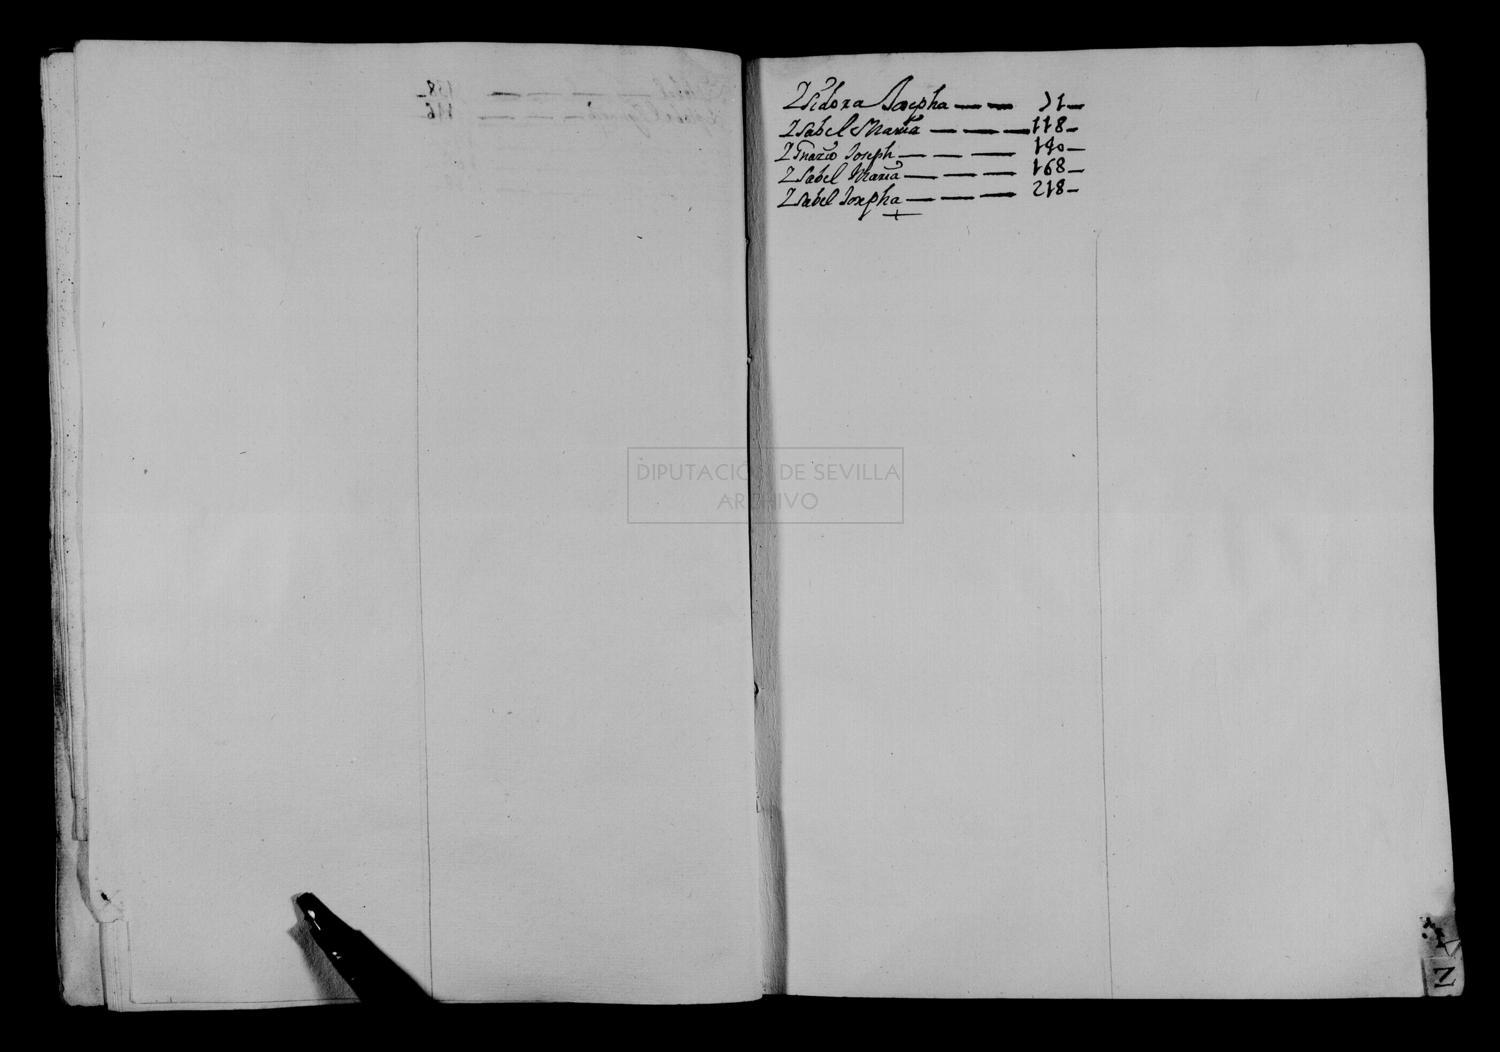 138-
146
Isidora Josepha — — 71-
Isabel Maria — — — 118-
Ignazio Joseph — — — 140-
Isabel Maria — — — 168-
Isabel Josepha — — — 218-
DIPUTACIÓN DE SEVILLA
ARCHIVO
N